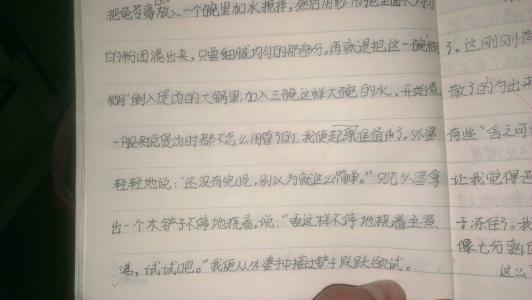 把龟苓膏放入一个碗里加水搅拌，然后用纱布把里面
的粉团滤出来，只要细腻均匀的那部分。再就是把这一碗"糊
糊"倒入煲汤的大锅里，加入三碗这样大碗的水，开始煮
一般来说煲汤时都不怎么用管了的，我便起来准备
轻轻地说："还没有完呢，别以为就这么简单。"只见外婆拿
出一个木铲子不停地搅着，说："要这样不停地搅着至煮
沸，试试吧。"我便从外婆手中接过铲子跃跃欲试。
了。这刚刚
散了的勺出
有些"舍之可
让我觉得
于冻住了。我
像七分熟的
这么